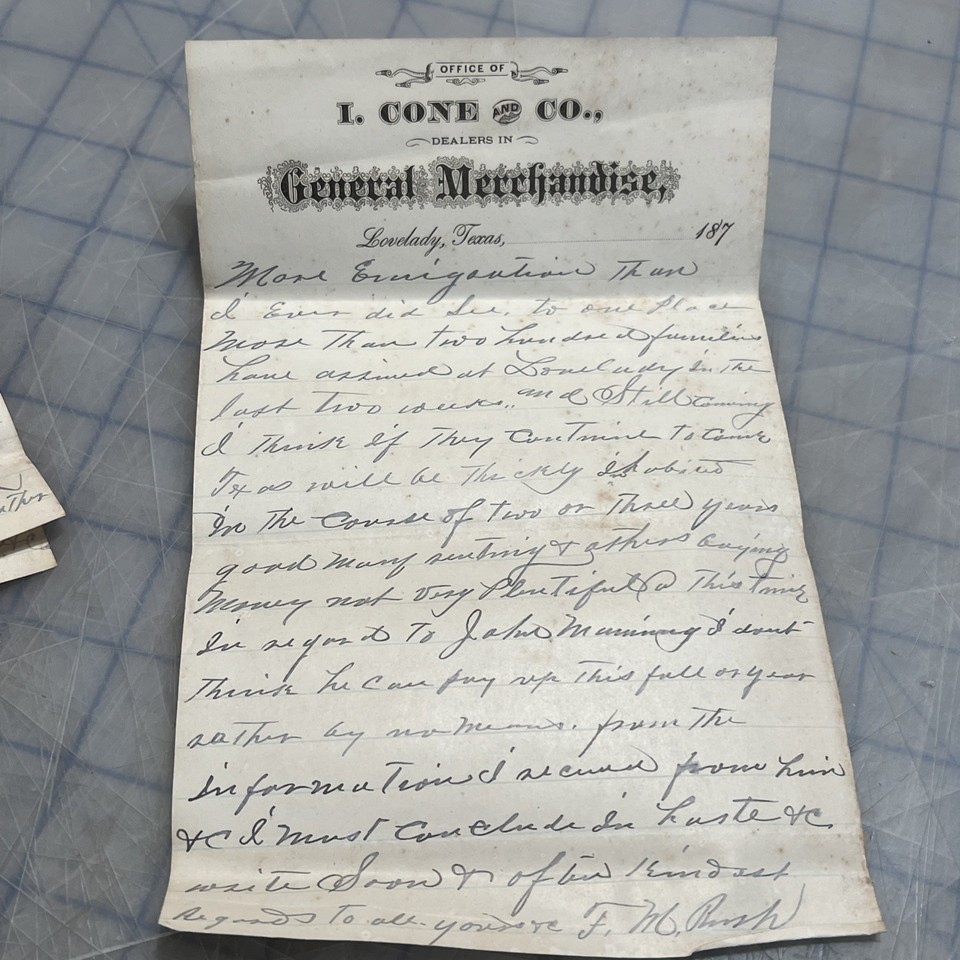 OFFICE OF
I. CONE AND CO.,
DEALERS IN
General Merchandise,
Lovelady, Texas, 187
More Emigration Than
I Ever did See, to one Place
More Than two hundred families
have arrived at Lovelady in the
last two weeks, and Still coming
I Think if They Continue to Come
Texas will be Thickly
In the Course of two or three years
good many renting & others buying
Money not very Plentiful @ This time
In regard To John Manning I dont
Think he can pay up This fall or year
rather by no means. from the
information I received from him
&C I Must Conclude in haste &C
write Soon & often Kindest
Regards To all yours &c F. M. Rush
ather